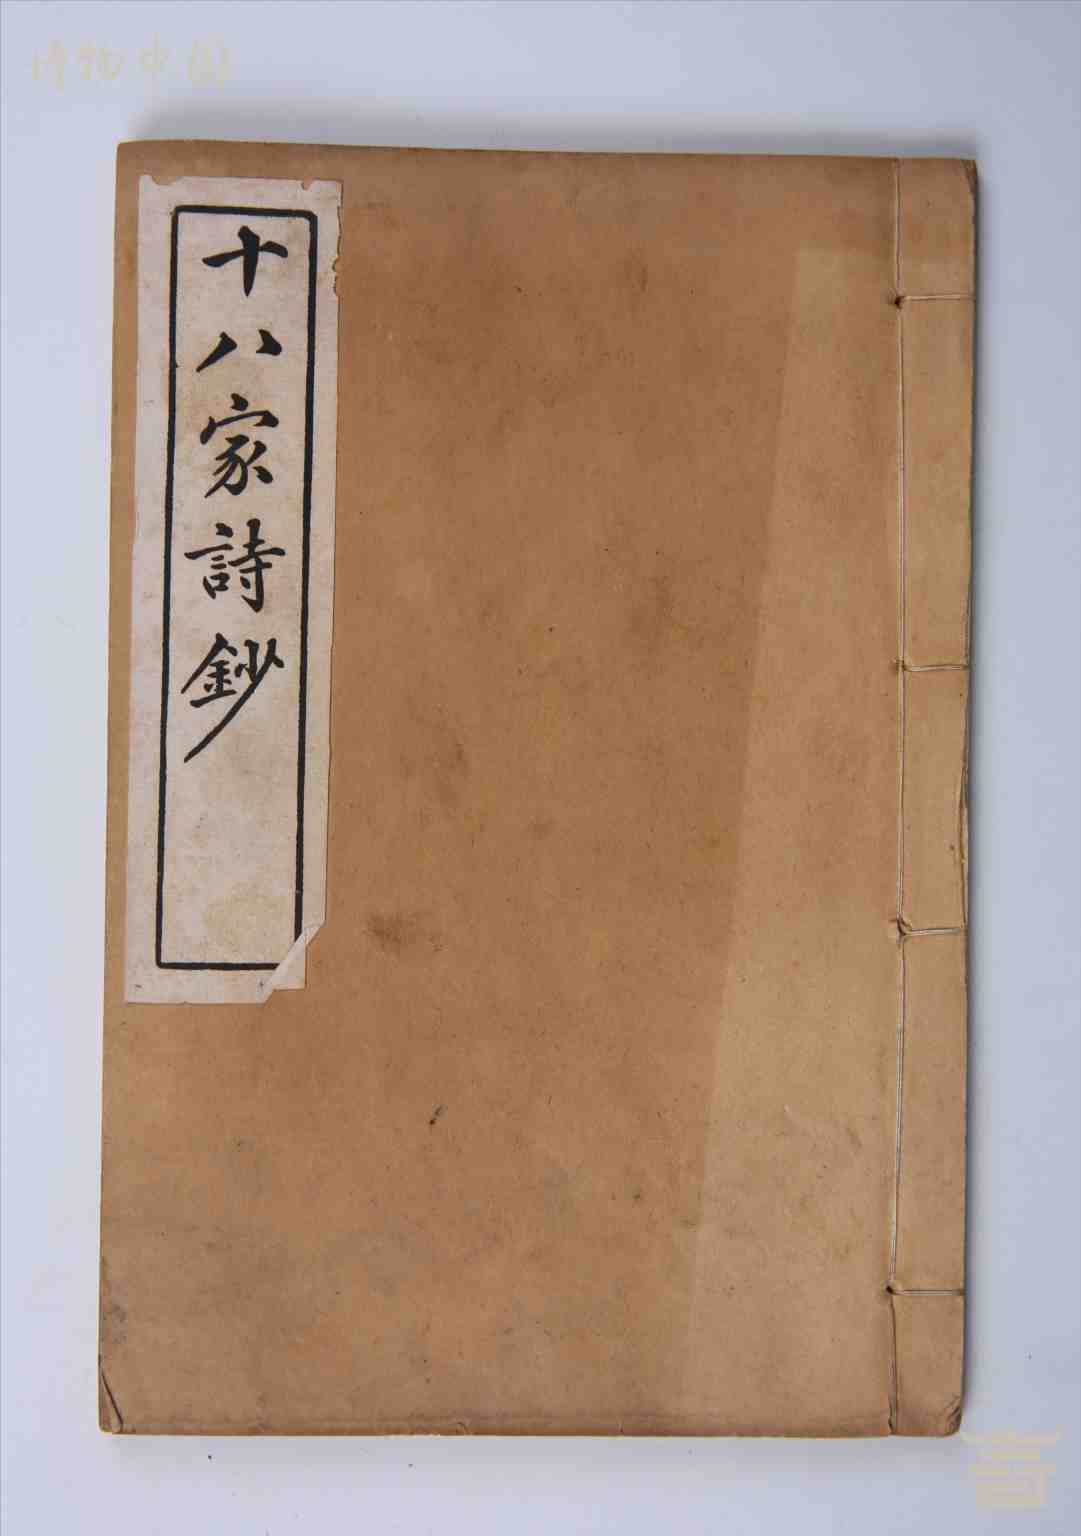 博物中国
十八家詩鈔